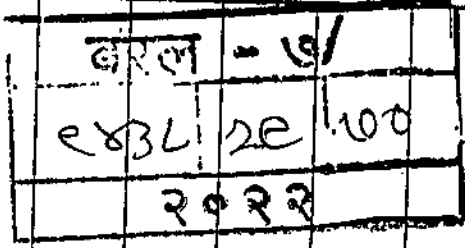 बरल - ७/
९४३८ २९ ७०
२०२२